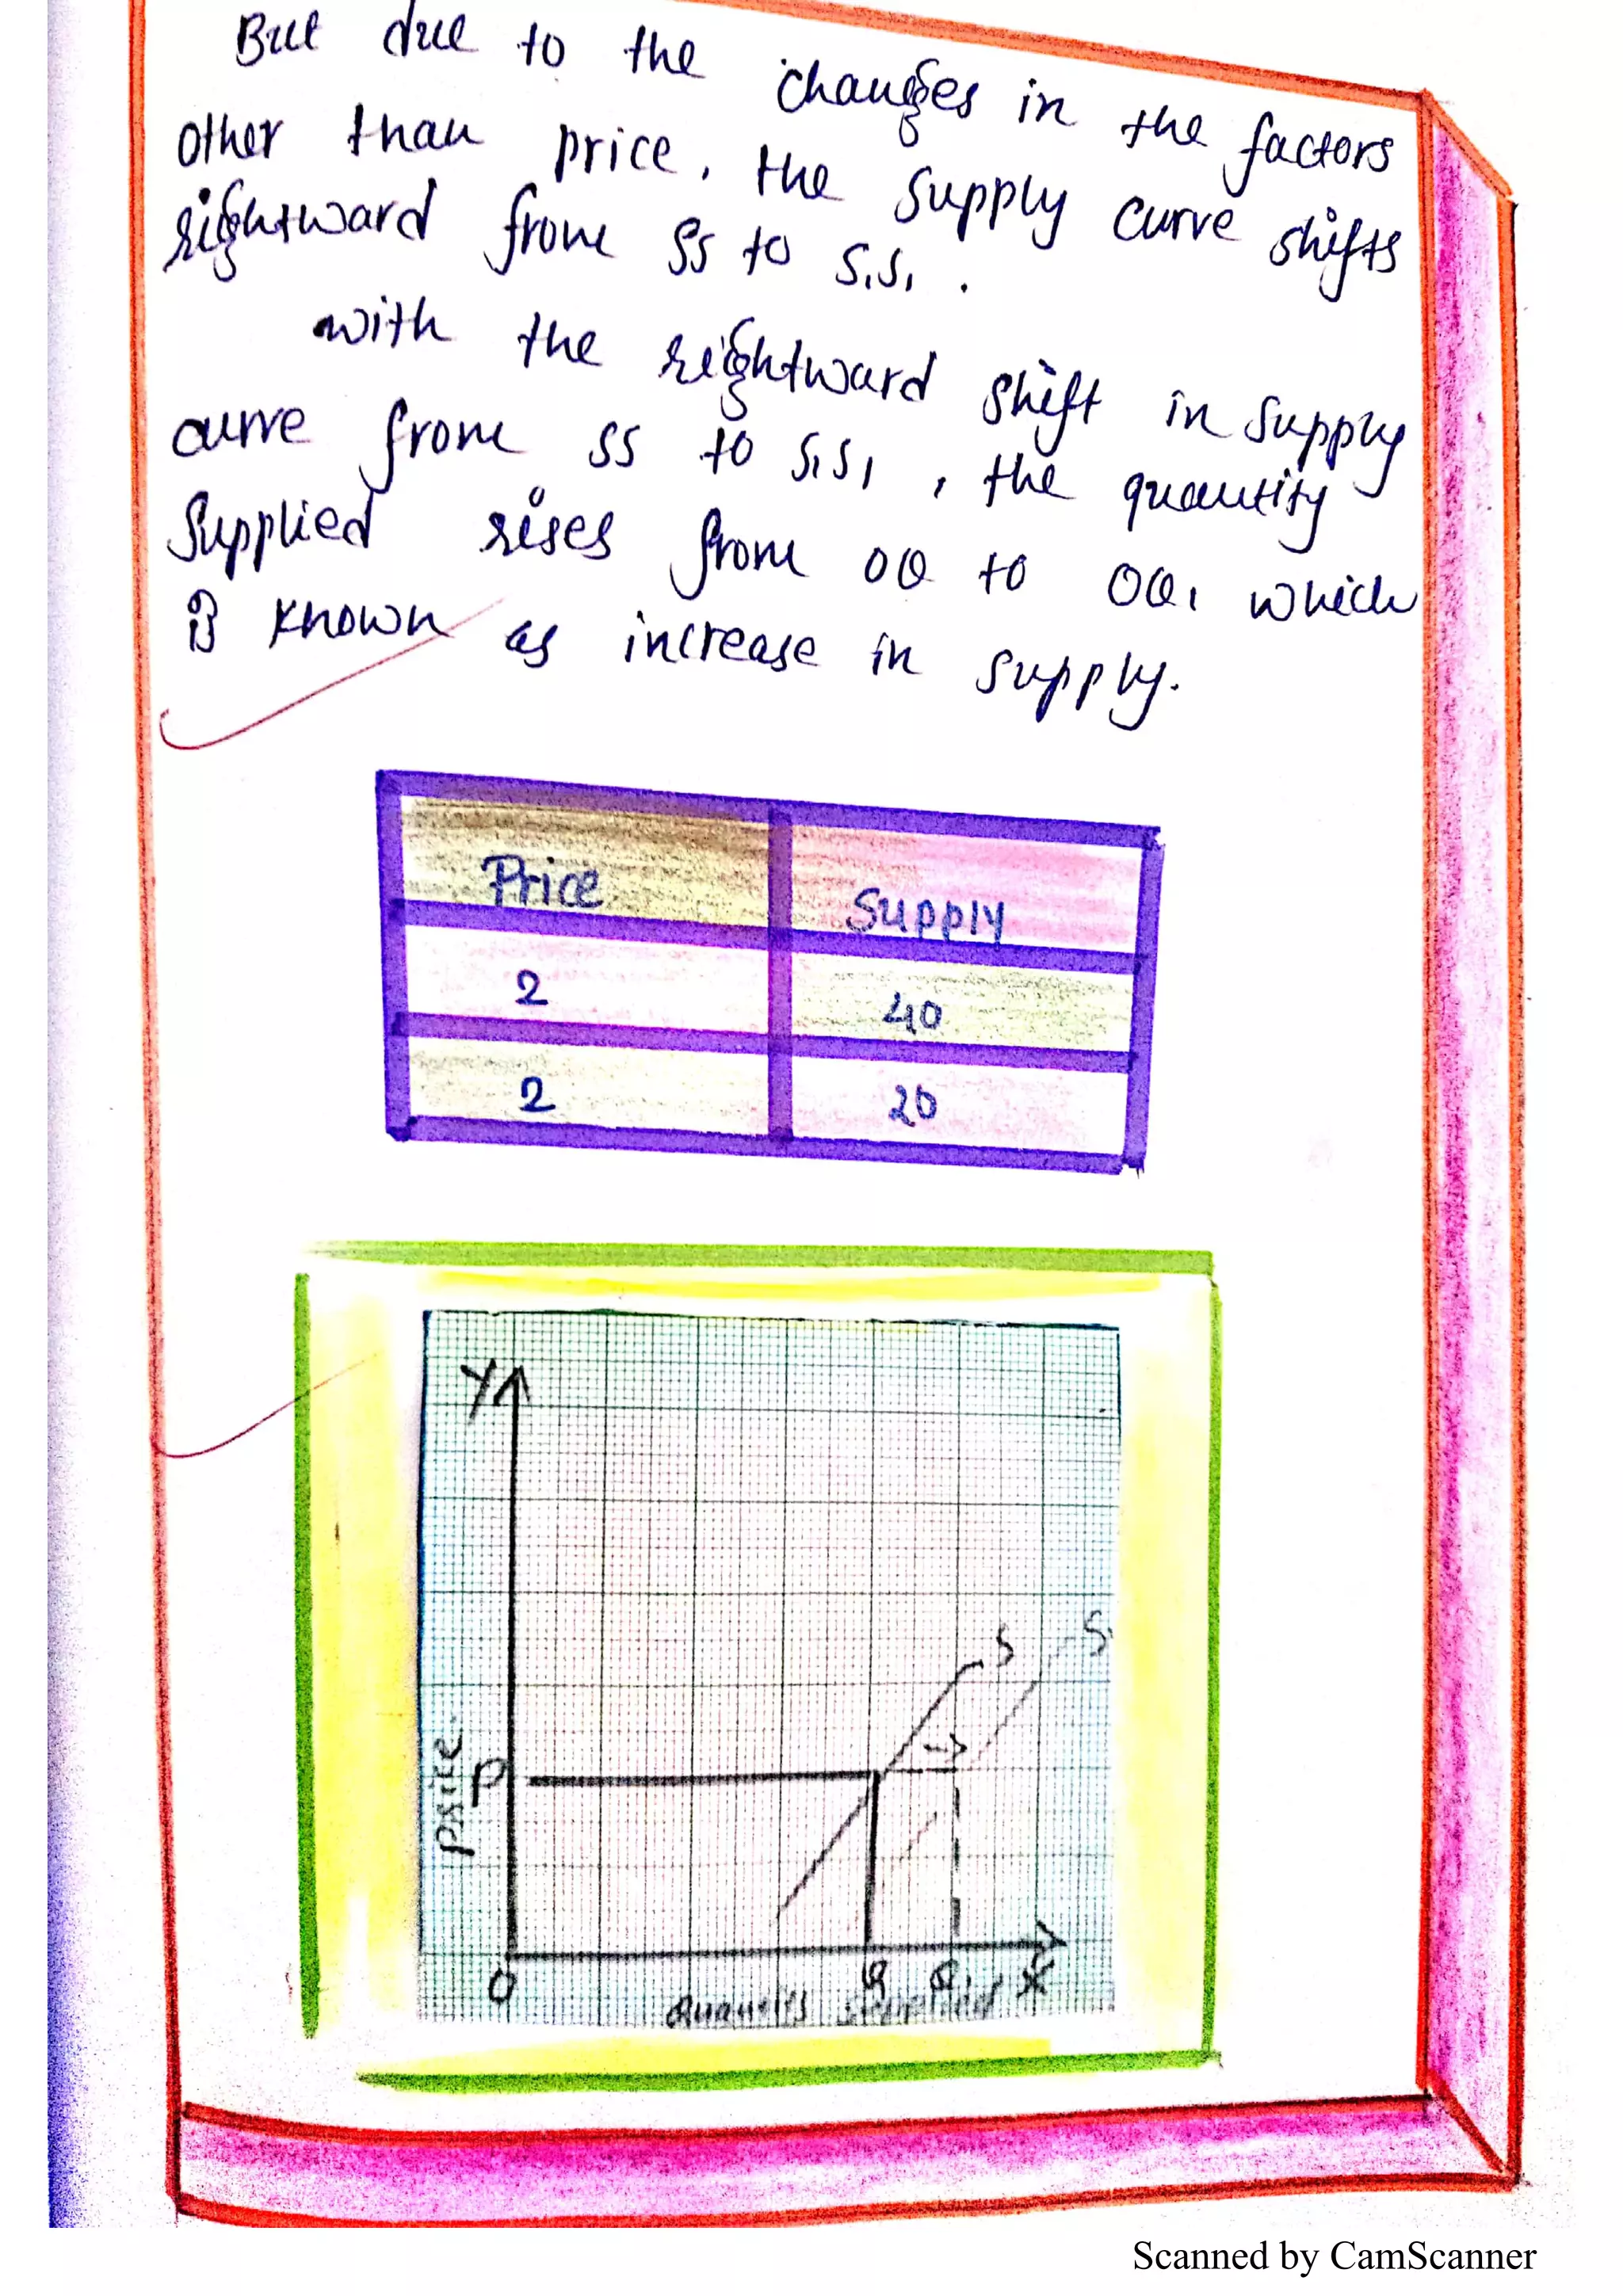 But due to the changes in the factors
other than price, the supply curve shifts
rightward from SS to S1S1.
with the rightward shift in supply
curve from SS to S1S1, the quantity
supplied rises from OQ to OQ1 which
is known as increase in supply.
Price Supply
2 40
2 20
Y
S S1
Price
P
O Q Q1 X
Quantity supplied
Scanned by CamScanner